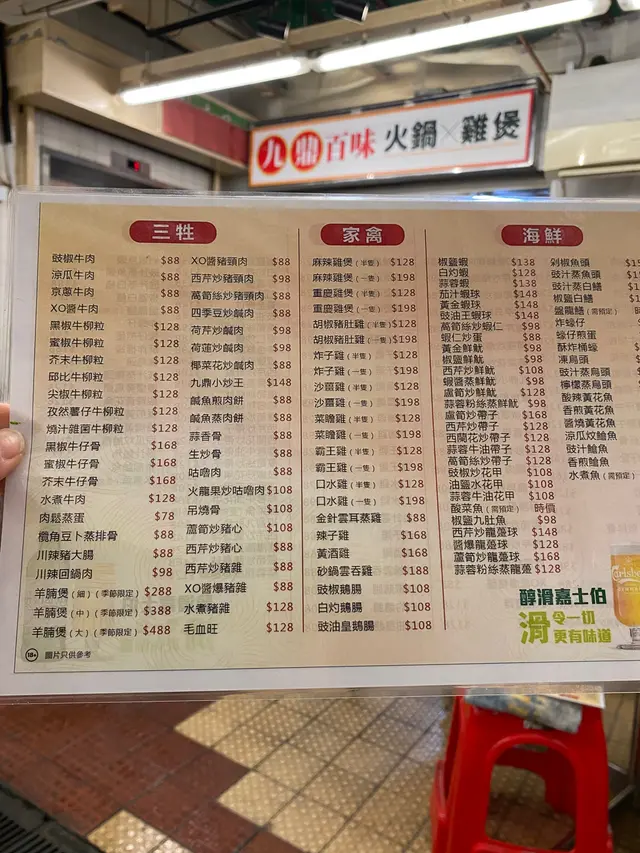 九鼎百味 火鍋×雞煲
三牲
豉椒牛肉 $88
涼瓜牛肉 $88
京蔥牛肉 $88
XO醬牛肉 $88
黑椒牛柳粒 $128
蜜椒牛柳粒 $128
芥末牛柳粒 $128
邱比牛柳粒 $128
尖椒牛柳粒 $128
孜然薯仔牛柳粒 $128
燒汁雜菌牛柳粒 $128
黑椒牛仔骨 $168
蜜椒牛仔骨 $168
芥末牛仔骨 $168
水煮牛肉 $128
肉鬆蒸蛋 $78
欖角豆卜蒸排骨 $88
川辣豬大腸 $88
川辣回鍋肉 $98
羊腩煲（細）（季節限定） $288
羊腩煲（中）（季節限定） $388
羊腩煲（大）（季節限定） $488
XO醬豬頸肉 $88
西芹炒豬頸肉 $98
萵筍絲炒豬頸肉 $88
四季豆炒鹹肉 $88
荷芹炒鹹肉 $98
荷蓮炒鹹肉 $98
椰菜花炒鹹肉 $88
九鼎小炒王 $148
鹹魚煎肉餅 $88
鹹魚蒸肉餅 $88
蒜香骨 $88
生炒骨 $88
咕嚕肉 $88
火龍果炒咕嚕肉 $108
吊燒骨 $108
蘆筍炒豬心 $108
西芹炒豬心 $88
西芹炒豬雜 $88
XO醬爆豬雜 $88
水煮豬雜 $128
毛血旺 $128
家禽
麻辣雞煲（半隻） $128
麻辣雞煲（一隻） $198
重慶雞煲（半隻） $128
重慶雞煲（一隻） $198
胡椒豬肚雞（半隻） $128
胡椒豬肚雞（一隻） $198
炸子雞（半隻） $128
炸子雞（一隻） $198
沙薑雞（半隻） $128
沙薑雞（一隻） $198
菜膽雞（半隻） $128
菜膽雞（一隻） $198
霸王雞（半隻） $128
霸王雞（一隻） $198
口水雞（半隻） $128
口水雞（一隻） $198
金針雲耳蒸雞 $88
辣子雞 $168
黃酒雞 $168
砂鍋雲吞雞 $188
豉椒鵝腸 $108
白灼鵝腸 $108
豉油皇鵝腸 $108
海鮮
椒鹽蝦 $138
白灼蝦 $128
蒜蓉蝦 $138
茄汁蝦球 $148
黃金蝦球 $148
豉油王蝦球 $148
萵筍絲炒蝦仁 $98
蝦仁炒蛋 $88
黃金鮮魷 $98
椒鹽鮮魷 $98
西芹炒鮮魷 $108
蝦醬蒸鮮魷 $98
蘆筍炒鮮魷 $128
蒜蓉粉絲蒸鮮魷 $98
蘆筍炒帶子 $168
西芹炒帶子 $128
西蘭花炒帶子 $128
蒜蓉牛油帶子 $128
萵筍絲炒帶子 $128
豉椒炒花甲 $108
油鹽水花甲 $108
蒜蓉牛油花甲 $108
酸菜魚（需預定） 時價
椒鹽九肚魚 $98
西芹炒龍躉球 $148
醬爆龍躉球 $128
蘆筍炒龍躉球 $168
蒜蓉粉絲蒸龍躉 $128
剁椒魚頭
豉汁蒸魚頭
豉汁蒸白鱔
椒鹽白鱔
盤龍鱔（需預定）
炸蠔仔
蠔仔煎蛋
酥炸桶蠔
凍烏頭
豉汁蒸烏頭
檸檬蒸烏頭
酸辣黃花魚
香煎黃花魚
醬燒黃花魚
涼瓜炆鱠魚
豉汁鱠魚
香煎鱠魚
水煮魚（需預定）
醇滑嘉士伯
滑 令一切更有味道
Carlsberg
18+ 圖片只供參考